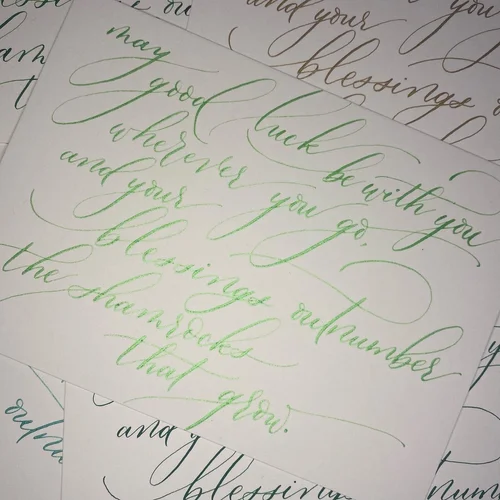 may
good luck be with you
wherever you go,
and your
blessings outnumber
the shamrocks
that grow.
and your
blessings
you
outnu
and y
blessin